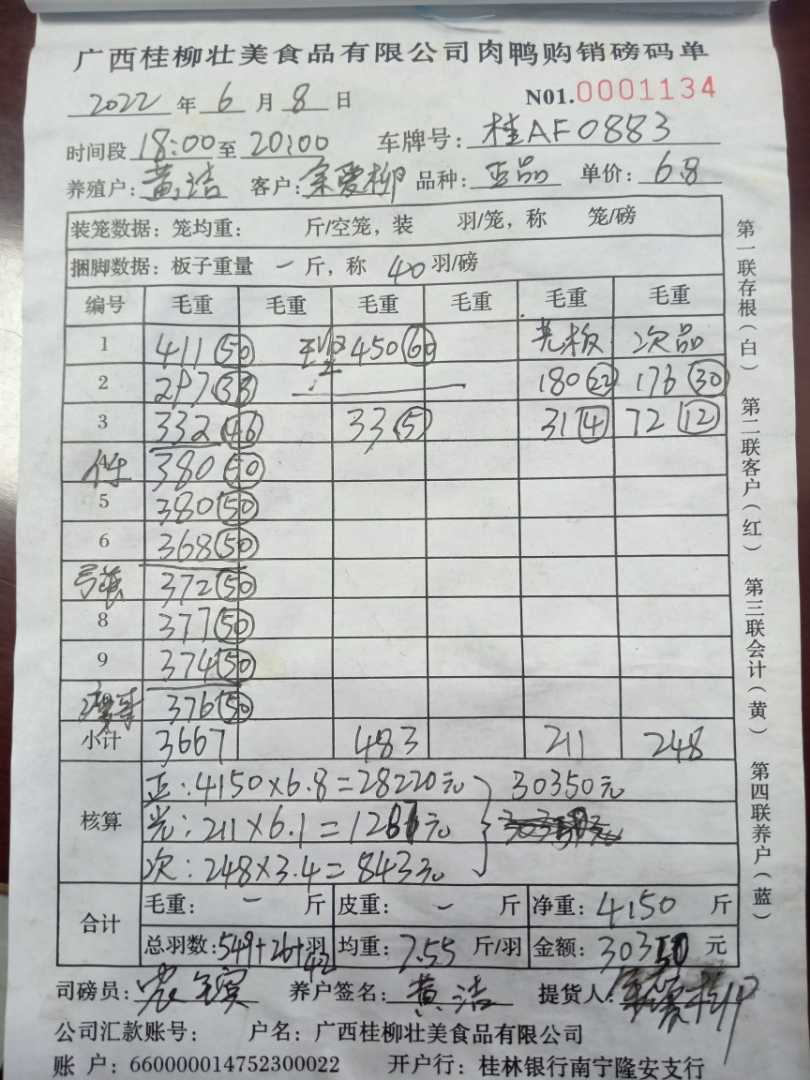 广西桂柳壮美食品有限公司肉鸭购销磅码单
2022 年 6 月 8 日 N01.0001134
时间段 18:00 至 20:00 车牌号: 桂AF0883
养殖户: 黄洁 客户: 余爱柳 品种: 正品 单价: 6.8
装笼数据: 笼均重: 斤/空笼, 装 羽/笼, 称 笼/磅
捆脚数据: 板子重量 一 斤, 称 40 羽/磅
编号 毛重 毛重 毛重 毛重 毛重 毛重
1 411 (50) 450 (60) 光板 次品
2 297 (38) 180 (22) 176 (30)
3 332 (46) 33 (5) 31 (4) 72 (12)
380 (50)
5 380 (50)
6 368 (50)
372 (50)
8 377 (50)
9 374 (50)
376 (50)
小计 3667 483 211 248
核算
正: 4150×6.8=28220元 30350元
光: 211×6.1=1287元
次: 248×3.4=843元
合计
毛重: 一 斤 皮重: 一 斤 净重: 4150 斤
总羽数: 549+26+42 羽 均重: 7.55 斤/羽 金额: 30350 元
司磅员: 养户签名: 黄洁 提货人: 余爱柳
公司汇款账号: 户名: 广西桂柳壮美食品有限公司
账 户: 660000014752300022 开户行: 桂林银行南宁隆安支行
第一联存根(白) 第二联客户(红) 第三联会计(黄) 第四联养户(蓝)